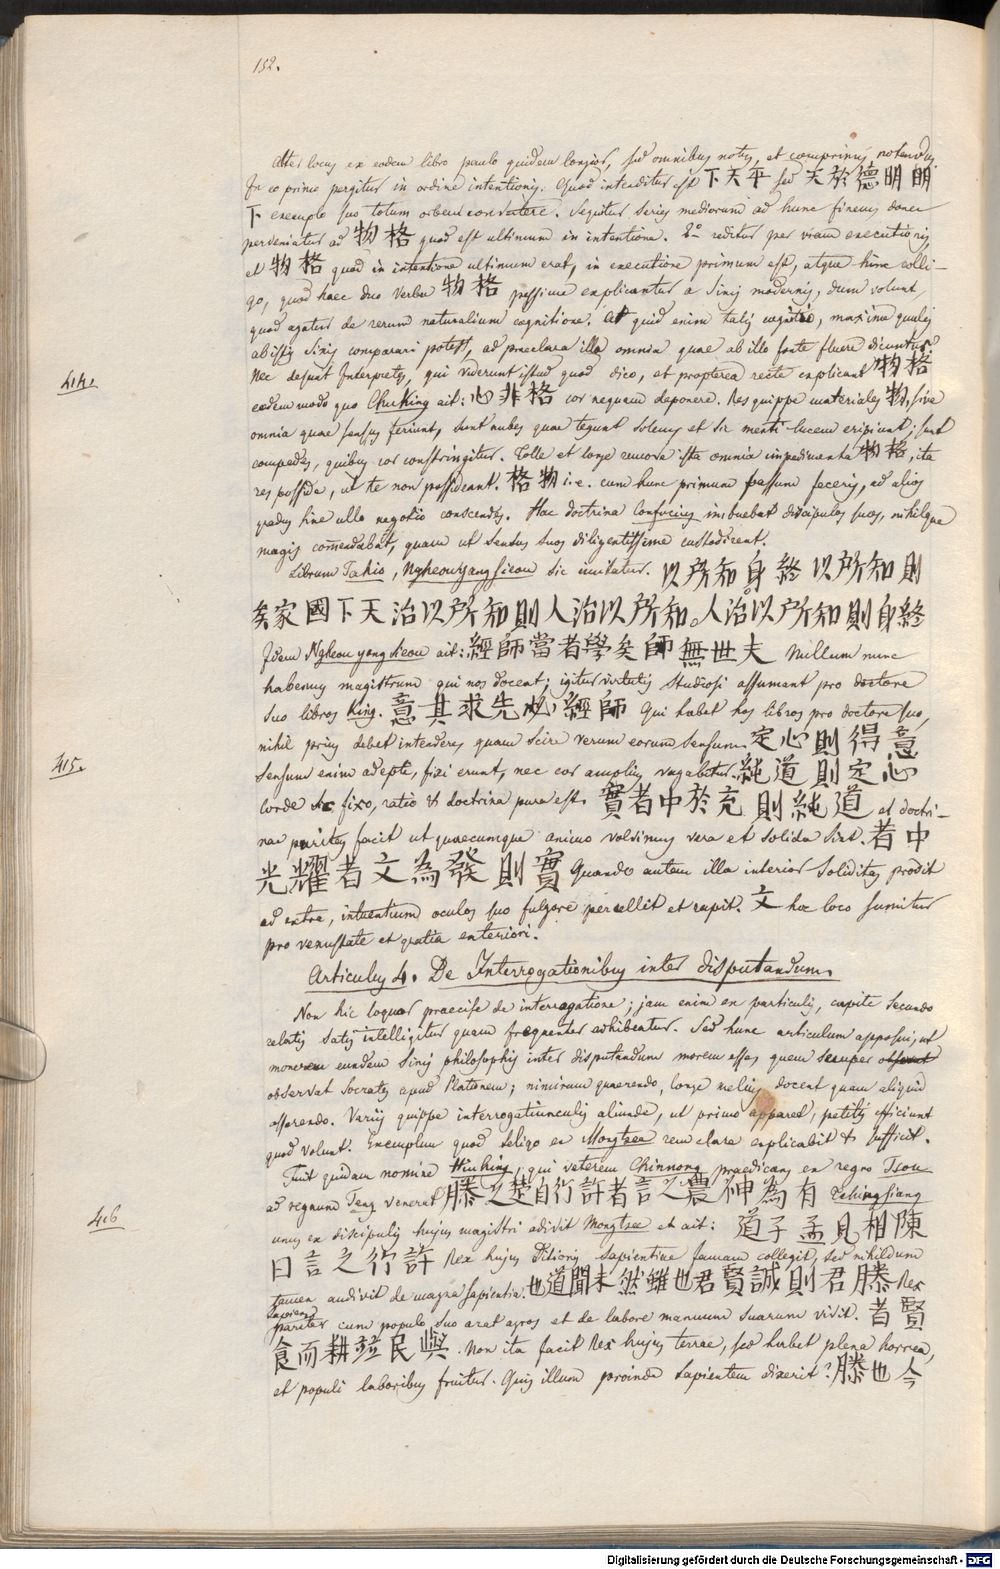 152.
Alter locus ex eodem libro paulo quidem longior, sed omnibus notus, et comprimis notandus
In eo primo pergitur in ordine intentionis. Quod intenditur est 下天平 sed 天於德明明
下 exemplo suo totum orbem convertere. Sequitur series mediorum ad hunc finem, donec
perveniatur ad 物格 quod est ultimum in intentione. 2º reditur per viam executionis,
et 物格 quod in intentione ultimum erat, in executione primum est, atque hinc colli-
go, quod haec duo verba 物格 pessime explicantur a Sinis modernis, dum volunt,
quod agatur de rerum naturalium cognitione. At quid enim talis cognitio, maxime qualis
ab istis Sinis comparari potest, ad praeclara illa omnia quae ab illo fonte fluere dicuntur.
414.
Nec desunt Interpretes, qui viderunt istud quod dico, et propterea recte explicant 物格
eodem modo quo Chu King ait: 心非格 cor nequam deponere. Res quippe materiales 物, sive
omnia quae sensus feriunt, sunt nubes quae tegunt solem, et sic menti lucem eripiunt; sunt
compedes, quibus cor constringitur. Tolle et longe remove ista omnia impedimenta 物格, ita
res posside, ut te non possideant. 格物 i.e. cum hunc primum passum feceris, ad alios
gradus sine ullo negotio conscendes. Hac doctrina Confucius imbuebat discipulos suos, nihilque
magis commendabat, quam ut sensus suos diligentissime custodirent.
Librum Tahio, Ngheouyang sieou sic imitatur. 以所知身終以所知則
矣家國下天治以所知則人治以所知。人治以所知則身終
Idem Ngheou yang sieou ait: 經師當者學矣師無世夫 Nullum nunc
habemus magistrum qui nos doceat; igitur virtutis studiosi assumant pro doctore
suo libros King. 意其求先必經師 Qui habet hos libros pro doctore suo,
nihil prius debet intendere, quam scire verum eorum sensum. 定心則得意
415.
Sensum enim adepte, fixi erunt, nec cor amplius vagabitur. 純道則定心
Corde sic fixo, ratio et doctrina pura est. 實者中於充則純道 et doctri-
nae puritas facit ut quaecumque animo volvimus vera et solida sint. 者中
光耀者文為發則實 Quando autem illa interior soliditas prodit
ad extra, intuentium oculos suo fulgore percellit et rapit. 文 hoc loco sumitur
pro venustate et gratia exteriori.
Articulus 4. De Interrogationibus inter disputandum.
Non hic loquor praecise de interrogatione; jam enim ex particulis, capite secundo
relatis satis intelligitur quam frequenter adhibentur. Sed hunc articulum apposui, ut
monerem eundem Sinis philosophis inter disputandum morem esse, quem semper
observat Socrates apud Platonem; nimirum quaerendo, longe melius docent quam aliquid
asserendo. Variis quippe interrogatiunculis aliunde, ut primo apparet, petitis efficiunt
quod volunt. Exemplum quod seligo ex Mengtsee rem clare explicabit et sufficit.
Fuit quidam nomine Hiuhing, qui veterem Chinnong praedicans ex regno Tsou
416
ad regnum Teng venerat 滕之楚自行許者言之農神為有 Tchingsiang
unus ex discipulis hujus magistri adivit Mengtsee et ait: 道子孟見相陳
曰言之行許 Rex hujus Ditionis sapientiae famam collegit, sed nihildum
tamen audivit de magna sapientia. 也道聞未然雖也君賢誠則君滕 Rex
sapiens
pariter cum populo suo arat agros et de labore manuum suarum vivit. 者賢
食而耕竝民與. Non ita facit Rex hujus terrae, sed habet plena horrea,
et populi laboribus fruitur. Quis illum proinde sapientem dixerit? 滕也今
Digitalisierung gefördert durch die Deutsche Forschungsgemeinschaft - DFG